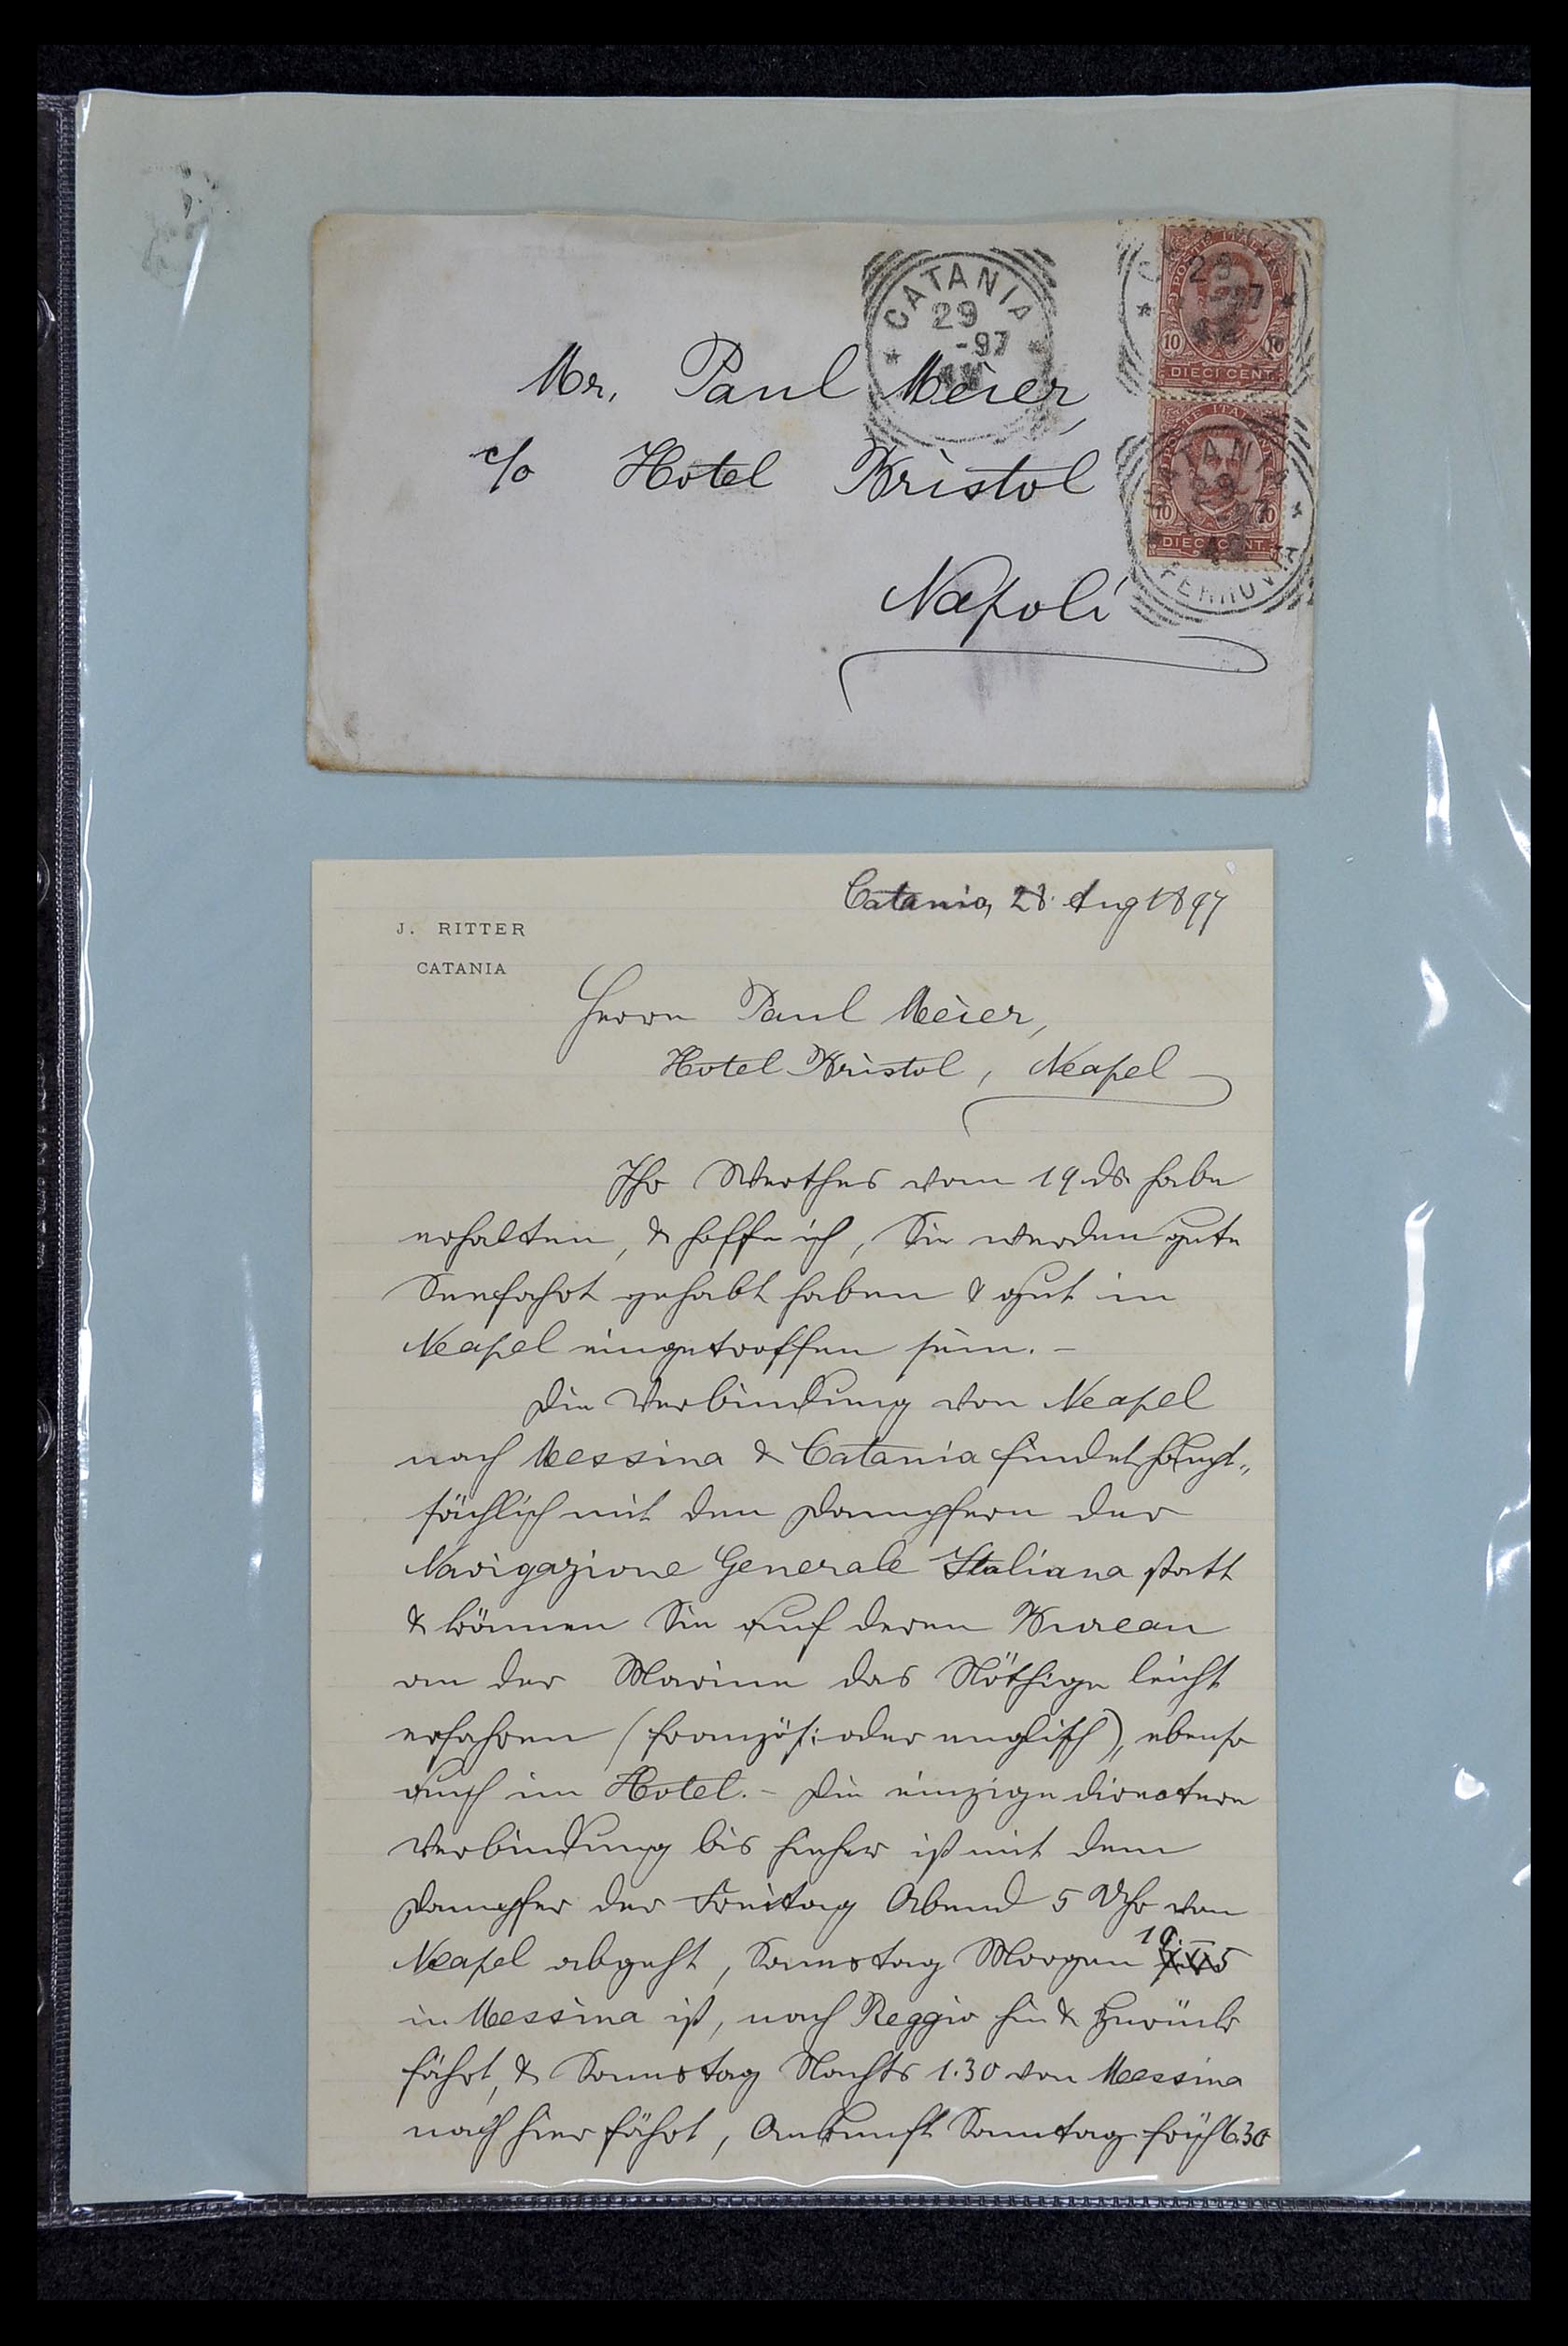 CATANIA
29
-97
POSTE ITALIANE
10 10
DIECI CENT.
29
-97
POSTE ITALIANE
10 10
DIECI CENT.
CATANIA
29
-97
FERROVIA
Mr. Paul Meier,
c/o Hotel Bristol
Napoli
Catania, 28. Aug 1897
J. RITTER
CATANIA
Herrn Paul Meier,
Hotel Bristol, Neapel
Ihr Werthes vom 19. ds. habe
erhalten, & hoffe ich, Sie werden gute
Seefahrt gehabt haben & gut in
Neapel eingetroffen sein. –
Die Verbindung von Neapel
nach Messina & Catania findet haupt-
sächlich mit den Dampfern der
Navigazione Generale Italiana statt
& können Sie auf deren Bureau
an der Marina das Nöthige leicht
erfahren (französ: oder englisch), ebenso
auch im Hotel. – Die einzige directere
Verbindung bis hieher ist mit dem
Dampfer der Freitag Abend 5 Uhr von
Neapel abgeht, Samstag Morgen 10.5
in Messina ist, nach Reggio hin & zurück
fährt, & Samstag Nachts 1.30 von Messina
nach hier fährt, Ankunft Sonntag früh 6.30